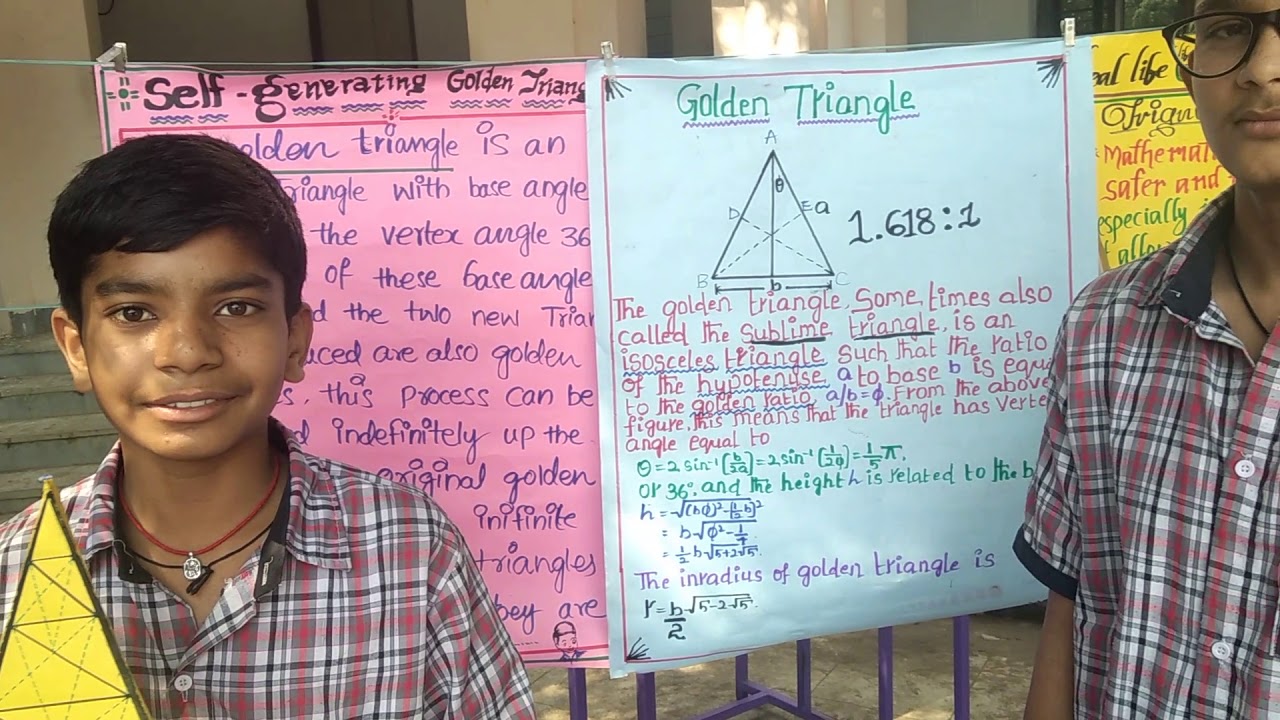 Self-generating Golden Triang
olden triangle is an
riangle with base angle
the vertex angle 36
of these base angle
d the two new Trian
uced are also golden
s, this process can be
d indefinitely up the
original golden
inifinite
triangles
bey are
Golden Triangle
A
θ
D
E a
1.618:1
B
C
b
The golden triangle, Some times also
called the sublime triangle, is an
isosceles triangle such that the ratio
of the hypotenuse a to base b is equa
to the golden ratio, a/b=φ. From the above
figure, this means that the triangle has verte
angle equal to
θ = 2 sin⁻¹ [b/2a] = 2 sin⁻¹ (1/2φ) = 1/5 π.
or 36°, and the height h is related to the b
h = √(bφ)² - [1/2 b]²
= b√φ² - 1/4
= 1/2 b√5+2√5.
The inradius of golden triangle is
r = b/2 √5-2√5.
eal life
Trign
Mathemati
safer and
especially i
f allo